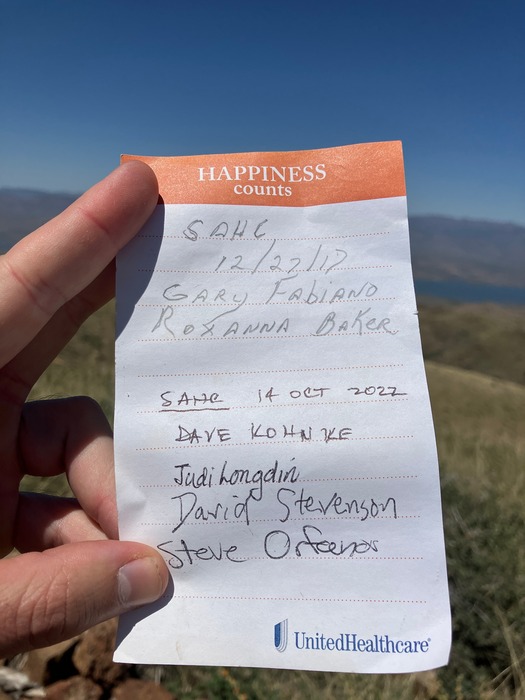 HAPPINESS
counts
SAHC
12/27/17
GARY FABIANO
ROXANNA BAKER
SAHC 14 OCT 2022
DAVE KOHNKE
Judi Longdin
David Stevenson
Steve
UnitedHealthcare®